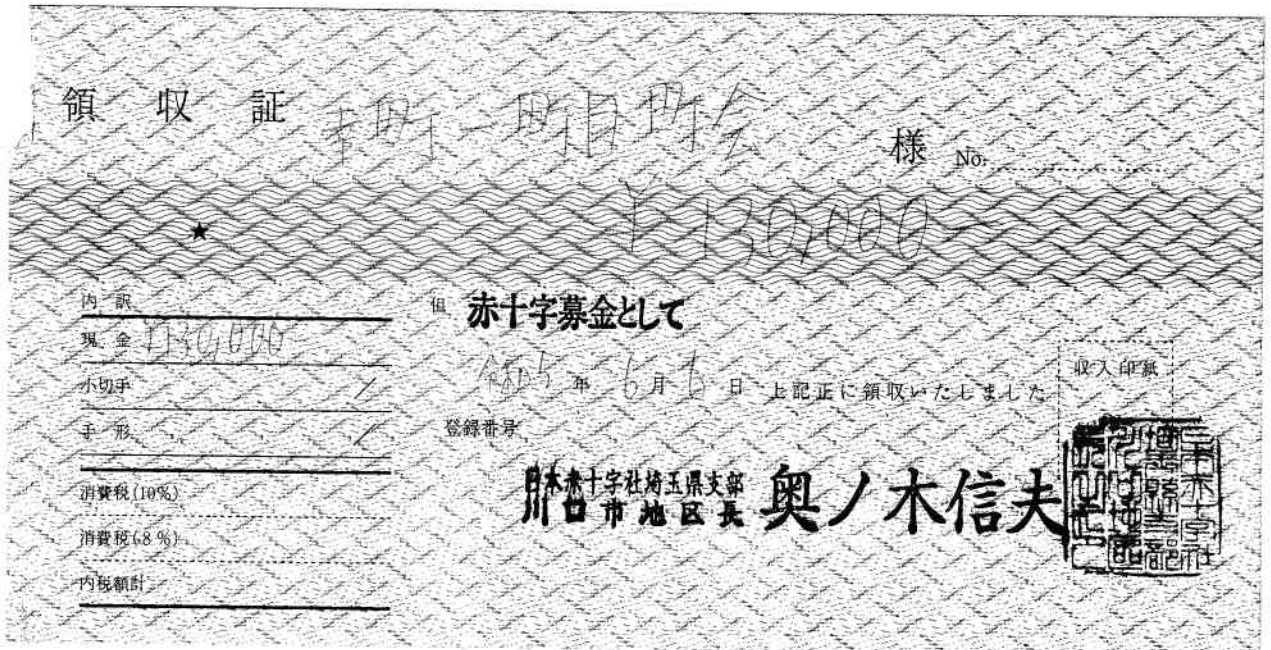 領収証 幸町一町目町会 様 No.
★ ¥130,000-
内訳
現金 ¥130,000-
小切手 /
手形 /
消費税(10%)
消費税(8%)
内税額計
但 赤十字募金として
令和5年6月6日 上記正に領収いたしました
収入印紙
登録番号
日本赤十字社埼玉県支部
川口市地区長 奥ノ木信夫